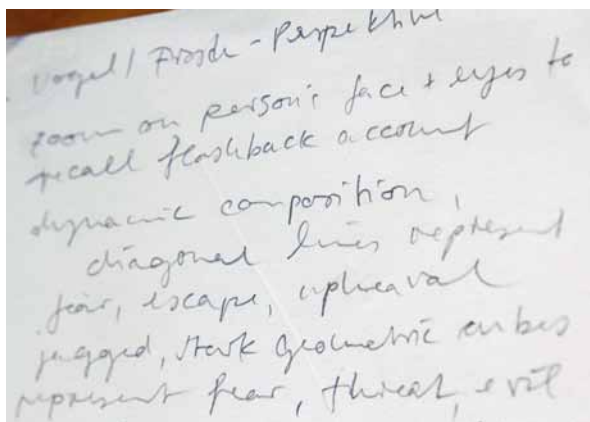 Vogel / Frosch - Perspektive
zoom on person's face + eyes to
recall flashback account
dynamic composition,
diagonal lines represent
fear, escape, upheaval
jagged, stark geometric cubes
represent fear, threat, evil